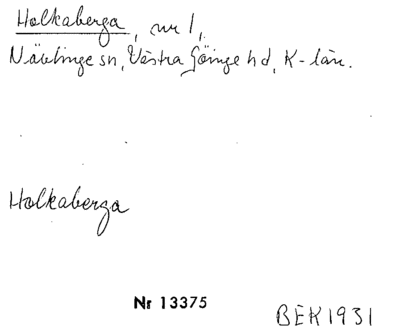 Holkaberga, nr 1,
Nävlinge sn, Västra Göinge hd, K-län.
Holkaberga
Nr 13375
BEK1931